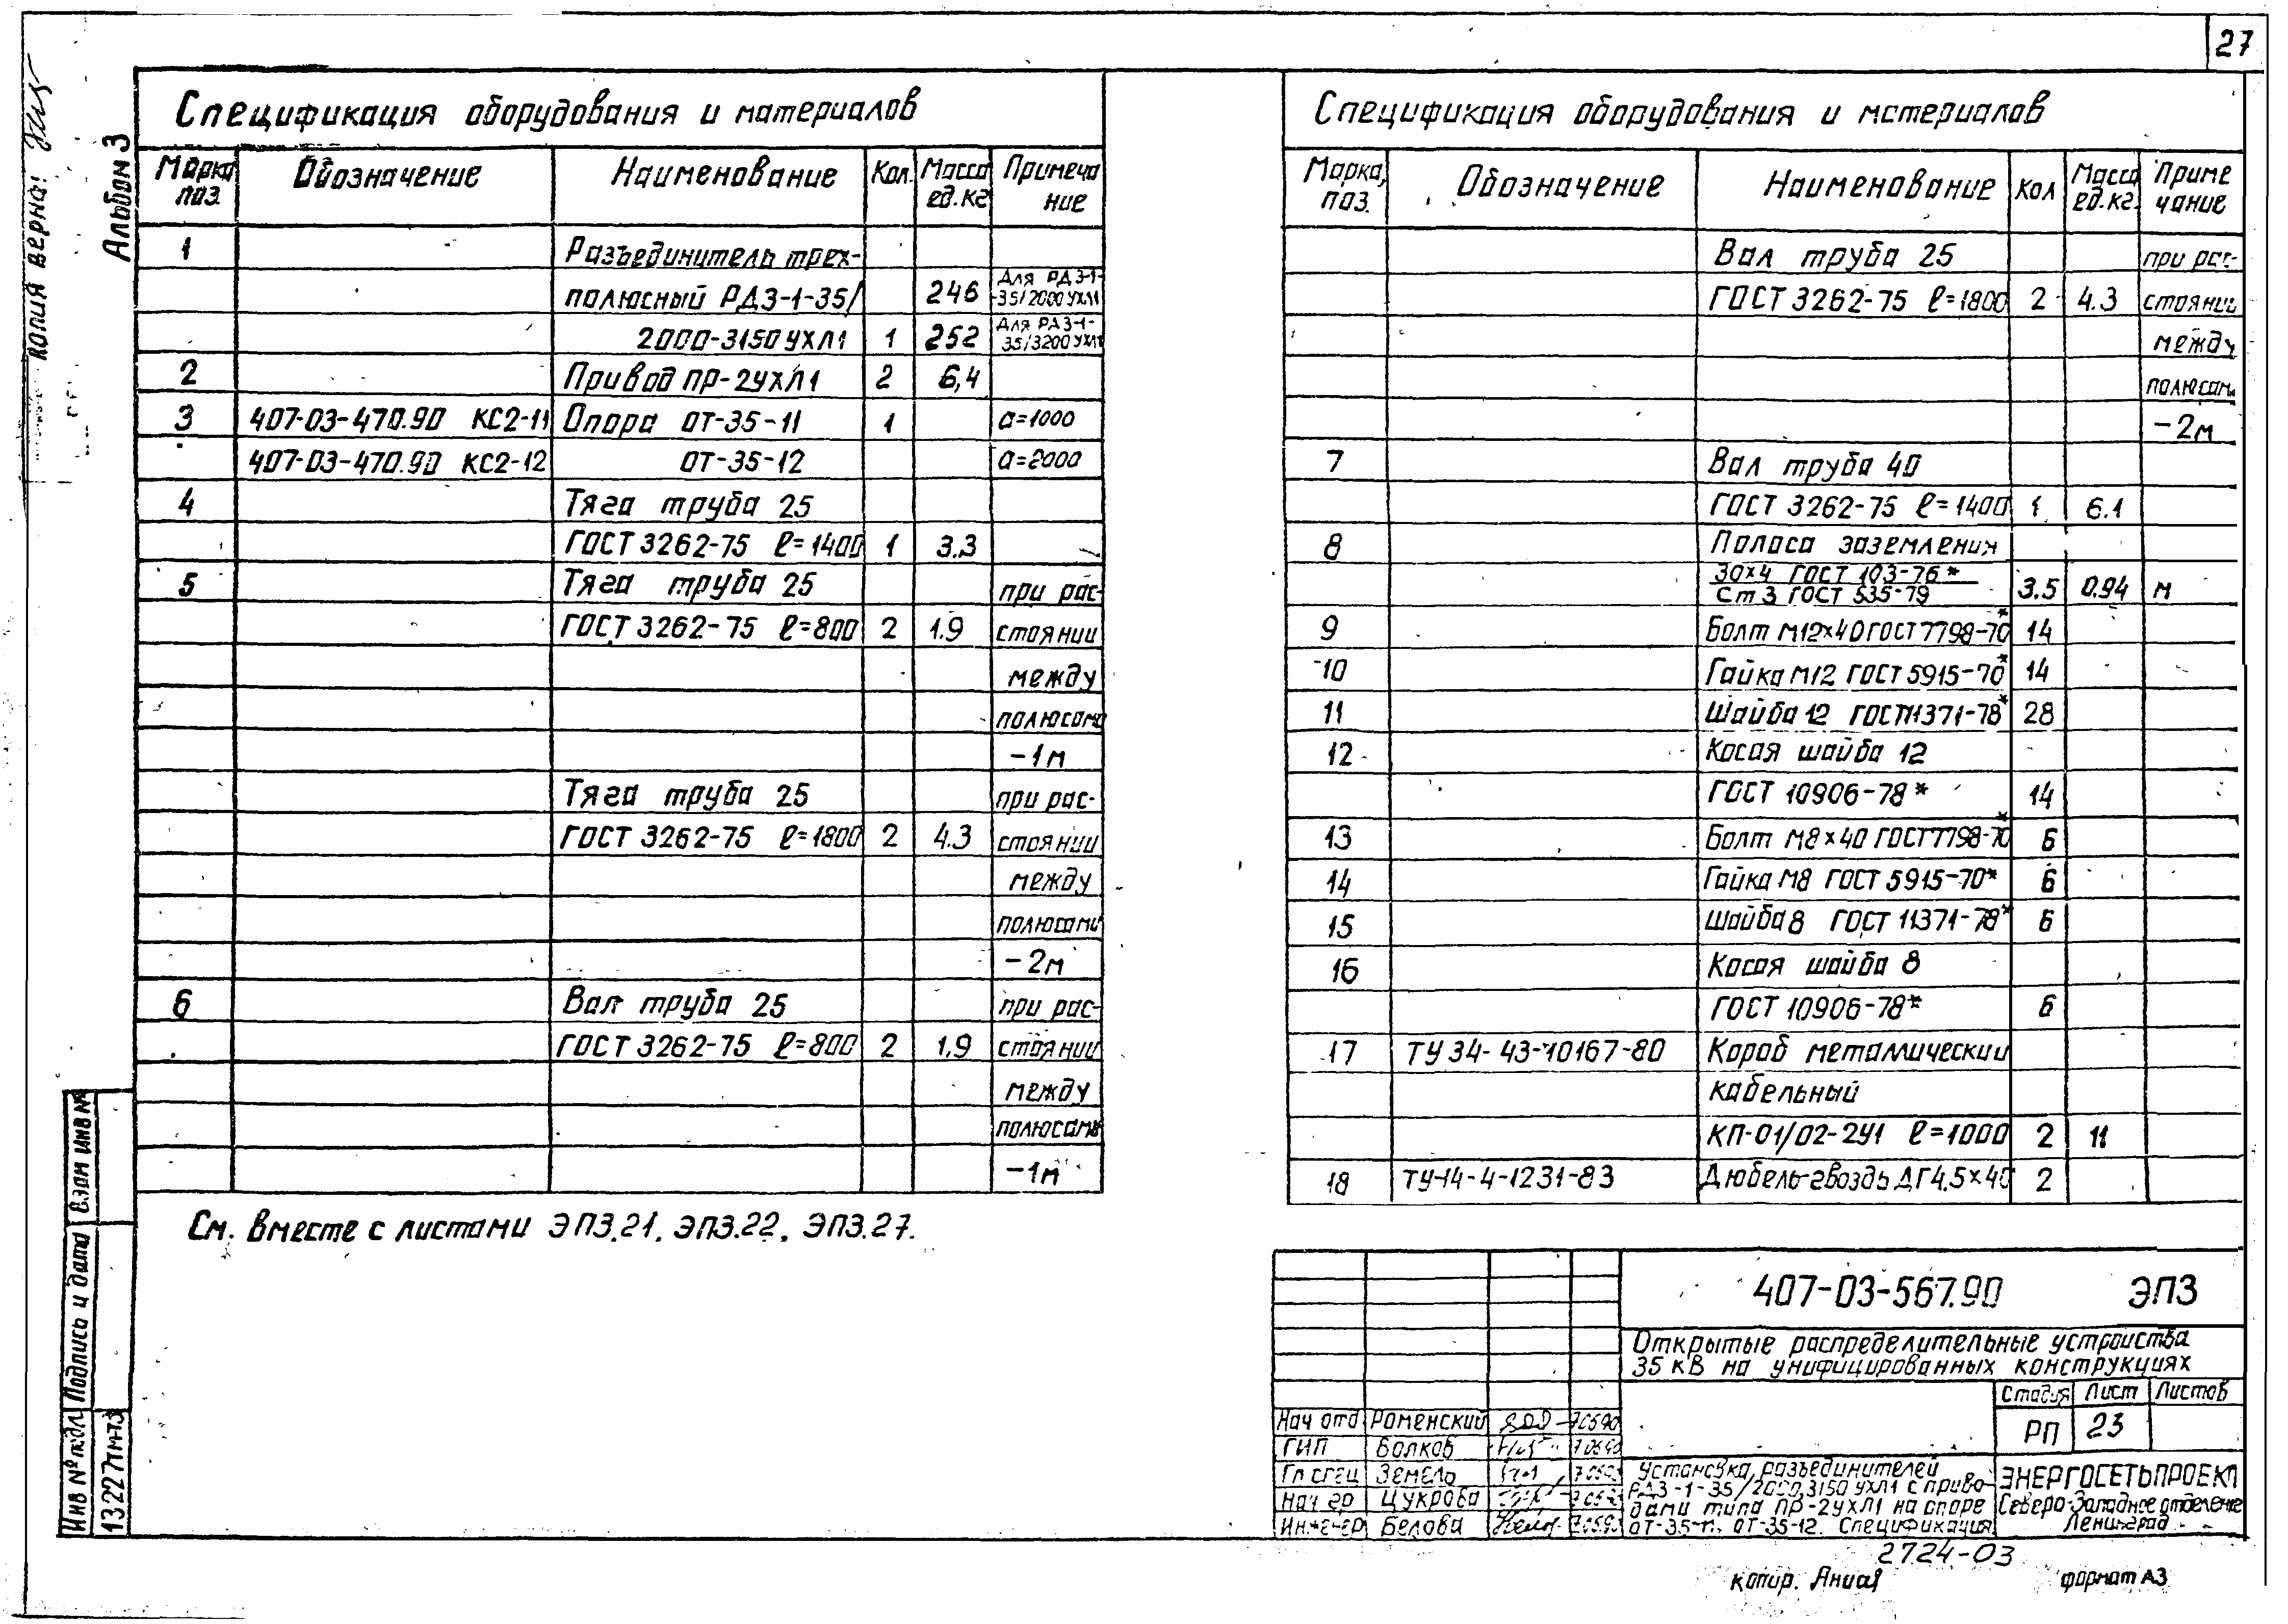 27
КОПИЯ ВЕРНА:
Альбом 3
Спецификация оборудования и материалов
Марка поз. | Обозначение | Наименование | Кол. | Масса ед.кг | Примечание
1 | Разъединитель трех-
полюсный РДЗ-1-35/ | 246 | Для РДЗ-1-35/2000 УХЛ1
2000-3150 УХЛ1 | 1 | 252 | Для РДЗ-1-35/3200 УХЛ1
2 | Привод ПР-2УХЛ1 | 2 | 6,4
3 | 407-03-470.90 КС2-11 | Опора ОТ-35-11 | 1 | а=1000
407-03-470.90 КС2-12 | ОТ-35-12 | а=2000
4 | Тяга труба 25
ГОСТ 3262-75 ℓ=1400 | 1 | 3.3
5 | Тяга труба 25 | при рас-
ГОСТ 3262-75 ℓ=800 | 2 | 1.9 | стоянии
между
полюсами
-1м
Тяга труба 25 | при рас-
ГОСТ 3262-75 ℓ=1800 | 2 | 4.3 | стоянии
между
полюсами
-2м
6 | Вал труба 25 | при рас-
ГОСТ 3262-75 ℓ=800 | 2 | 1.9 | стоянии
между
полюсами
-1м
См. вместе с листами ЭП3.21, ЭП3.22, ЭП3.27.
Спецификация оборудования и материалов
Марка, поз. | Обозначение | Наименование | Кол | Масса ед.кг. | Примечание
Вал труба 25 | при рас-
ГОСТ 3262-75 ℓ=1800 | 2 | 4.3 | стоянии
между
полюсами
-2м
7 | Вал труба 40
ГОСТ 3262-75 ℓ=1400 | 1 | 6.1
8 | Полоса заземления
30×4 ГОСТ 103-76*
Ст3 ГОСТ 535-79 | 3.5 | 0.94 | м
9 | Болт М12×40 ГОСТ 7798-70* | 14
10 | Гайка М12 ГОСТ 5915-70* | 14
11 | Шайба 12 ГОСТ 11371-78* | 28
12 | Косая шайба 12
ГОСТ 10906-78* | 14
13 | Болт М8×40 ГОСТ 7798-70* | 6
14 | Гайка М8 ГОСТ 5915-70* | 6
15 | Шайба 8 ГОСТ 11371-78* | 6
16 | Косая шайба 8
ГОСТ 10906-78* | 6
17 | ТУ 34-43-10167-80 | Короб металлический
кабельный
КП-01/02-2У1 ℓ=1000 | 2 | 11
18 | ТУ-14-4-1231-83 | Дюбель-гвоздь ДГ4,5×40 | 2
407-03-567.90 ЭП3
Открытые распределительные устройства
35 кВ на унифицированных конструкциях
Стадия | Лист | Листов
РП | 23
Нач отд | Роменский | 7.05.90
ГИП | Волков | 7.05.90
Гл спец | Земело
Нач гр | Цукрова
Инженер | Белова | 7.05.90
Установка разъединителей
РДЗ-1-35/2000,3150 УХЛ1 с приво-
дами типа ПР-2УХЛ1 на опоре
ОТ-35-11, ОТ-35-12. Спецификация
ЭНЕРГОСЕТЬПРОЕКТ
Северо-Западное отделение
Ленинград
Инв № подл | Подпись и дата | Взам инв №
13227тм-т3
2724-03
копир. формат А3